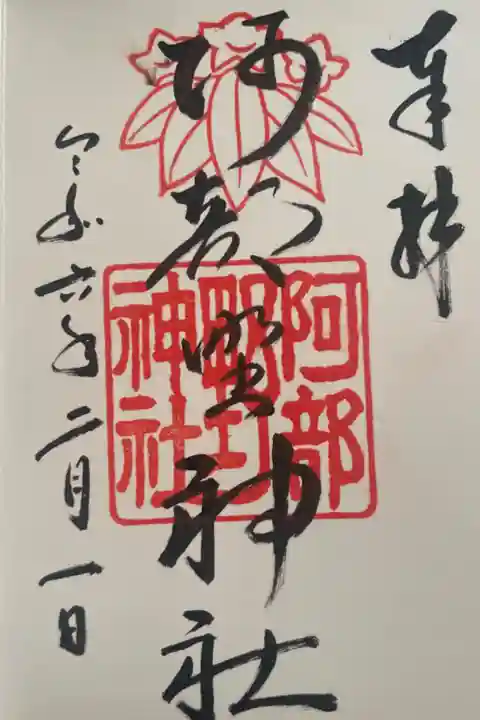 奉拝
阿部野神社
令和六年二月一日
阿部
野
神社